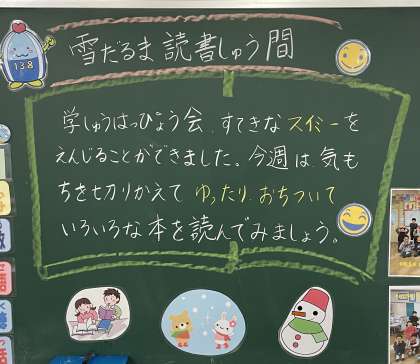 雪だるま読書しゅう間
138
学しゅうはっぴょう会、すてきなスイミーを
えんじることができました。今週は気も
ちを切りかえてゆったり、おちついて
いろいろな本を読んでみましょう。